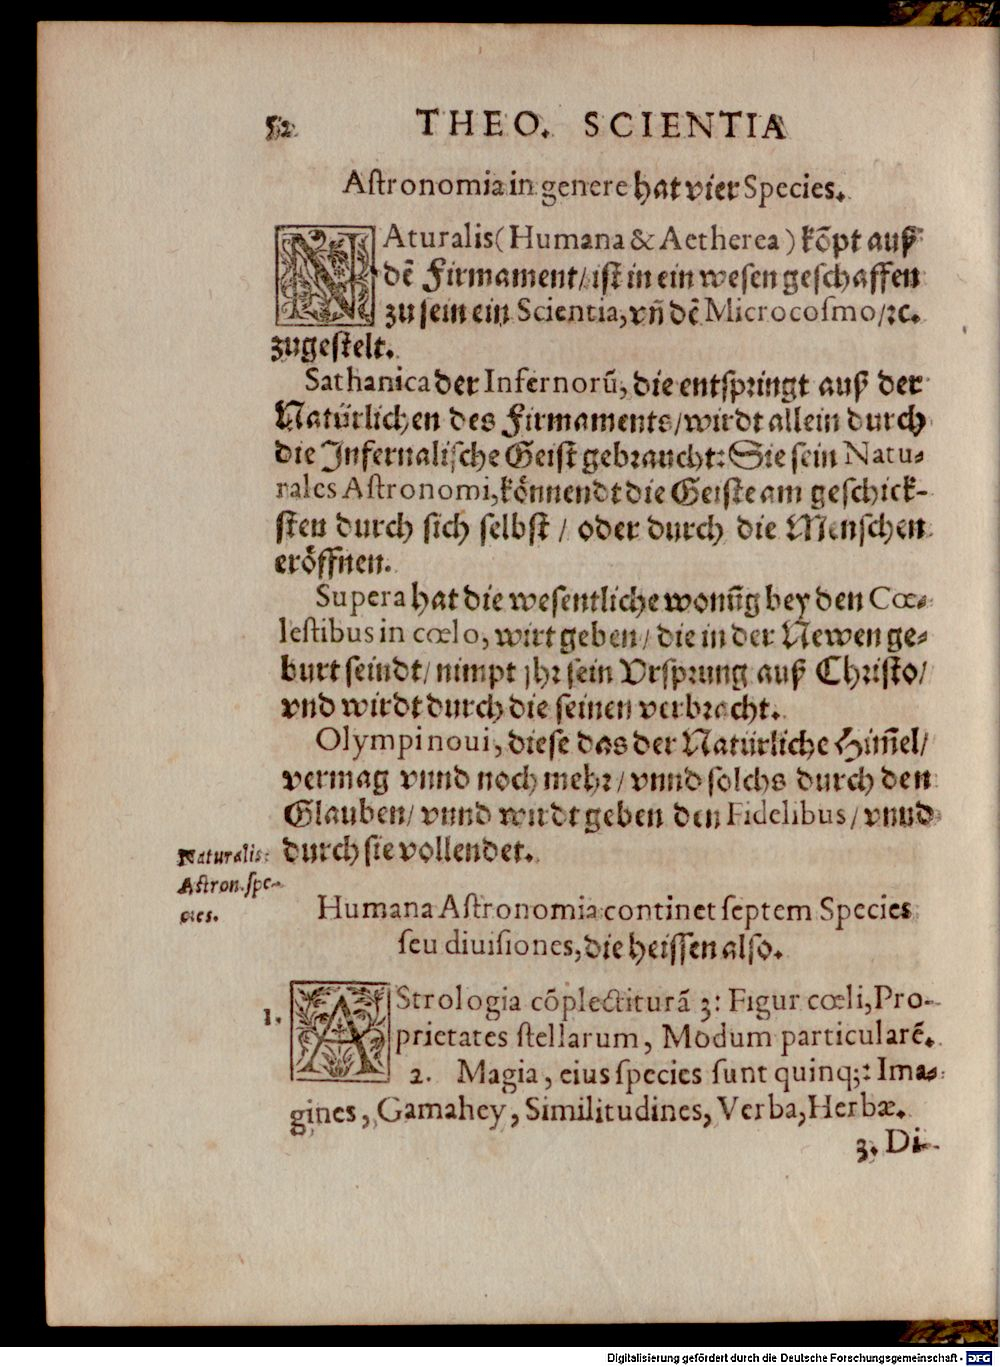 52 THEO. SCIENTIA
Aſtronomia in genere hat vier Species.
NAturalis (Humana & Aetherea) kõpt auß
dẽ Firmament/ iſt in ein weſen geſchaffen
zu ſein ein Scientia, vñ dẽ Microcoſmo/ ꝛc.
zugeſtelt.
Sathanica der Infernorũ, die entſpringt auß der
Natürlichen des Firmaments/ wirdt allein durch
die Infernaliſche Geiſt gebraucht: Sie ſein Natu-
rales Aſtronomi, könnendt die Geiſte am geſchick-
ſten durch ſich ſelbſt / oder durch die Menſchen
eröffnen.
Supera hat die weſentliche wonũg bey den Cœ-
leſtibus in cœlo, wirt geben/ die in der Newen ge-
burt ſeindt/ nimpt jhr ſein Vrſprung auß Chriſto/
vnd wirdt durch die ſeinen verbracht.
Olympi noui, dieſe das der Natürliche Him̃el/
vermag vnnd noch mehr/ vnnd ſolchs durch den
Glauben/ vnnd wirdt geben den Fidelibus/ vnnd
durch ſie vollendet.
Naturalis
Aſtron. ſpe-
cies.
Humana Aſtronomia continet ſeptem Species
ſeu diuiſiones, die heiſſen alſo.
1. AStrologia cõplectiturã 3: Figur cœli, Pro-
prietates ſtellarum, Modum particularẽ.
2. Magia, eius ſpecies ſunt quinq;: Ima-
gines, Gamahey, Similitudines, Verba, Herbæ.
3. Di-
Digitalisierung gefördert durch die Deutsche Forschungsgemeinschaft - DFG